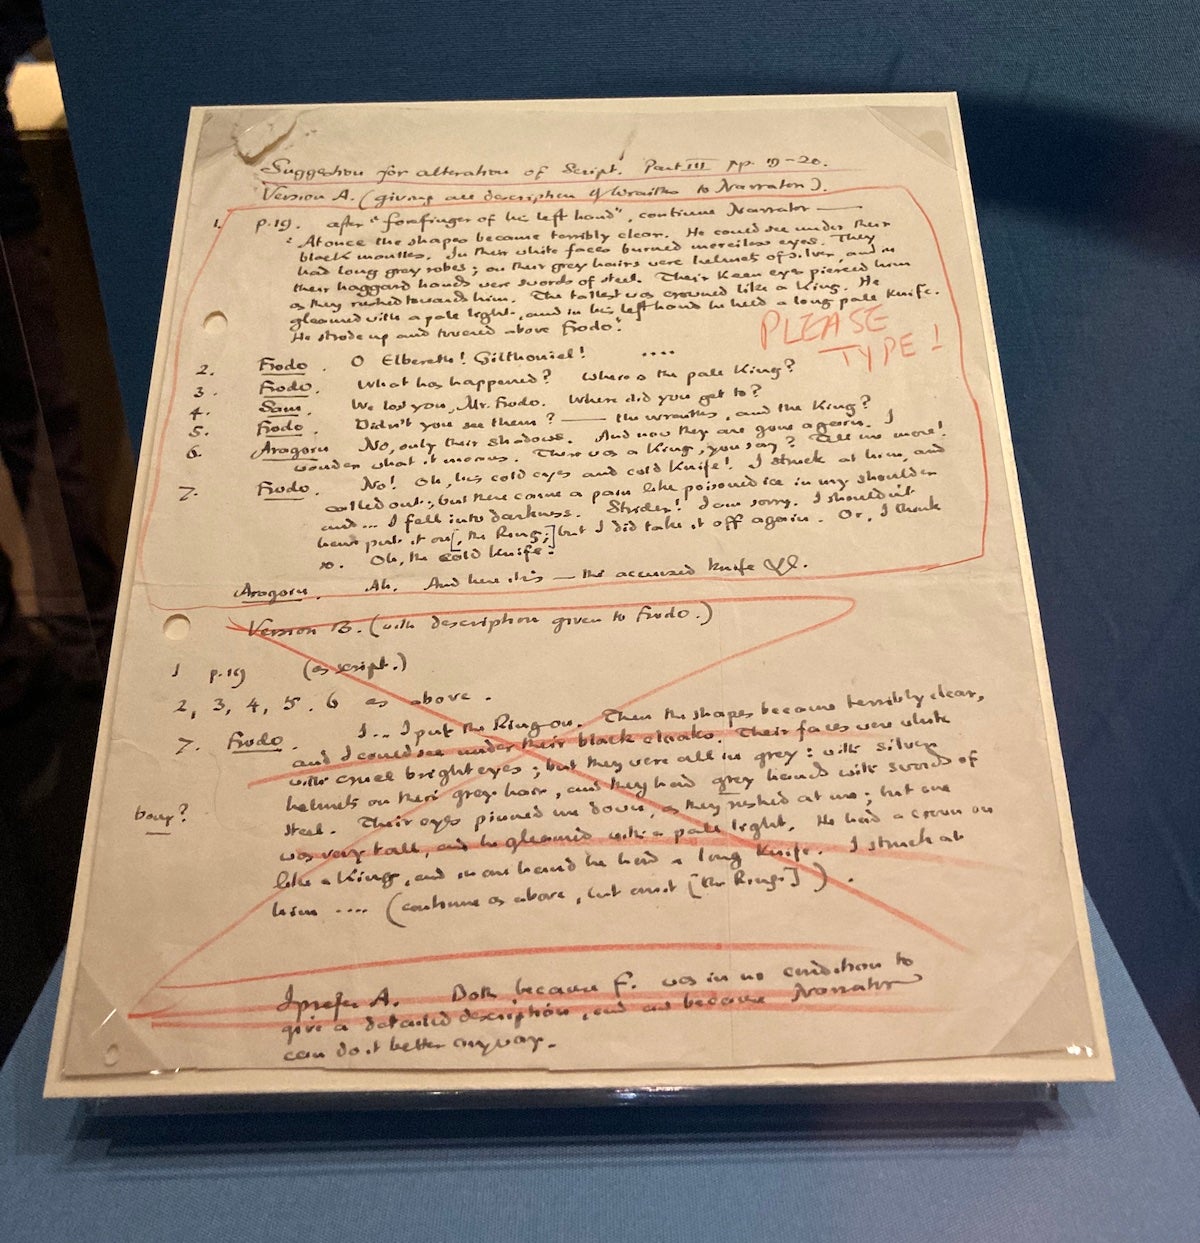 Suggestion for alteration of Script. Part III pp. 19-20.
Version A. (giving all description of Wraiths to Narrator).
1. p.19. after "forefinger of his left hand", continue Narrator —
: At once the shapes became terribly clear. He could see under their
black mantles. In their white faces burned merciless eyes. They
had long grey robes; on their grey hairs were helmets of silver, and in
their haggard hands were swords of steel. Their keen eyes pierced him
as they rushed towards him. The tallest was crowned like a King. He
gleamed with a pale light, and in his left hand he held a long pale knife.
He strode up and towered above Frodo".
PLEASE
TYPE!
2. Frodo. O Elbereth! Gilthoniel! ....
3. Frodo. What has happened? Where is the pale King?
4. Sam. We lost you, Mr. Frodo. Where did you get to?
5. Frodo. Didn't you see them? — the wraiths, and the King?
6. Aragorn No, only their shadows. And now they are gone again. I
wonder what it means. There was a King, you say? Tell me more!
7. Frodo. No! Oh, his cold eyes and cold knife! I struck at him, and
called out; but there came a pain like poisoned ice in my shoulder
and... I fell into darkness. Strider! I am sorry. I shouldn't
have put it on [, the Ring;] but I did take it off again. Or, I think
so. Oh, the cold knife!
Aragorn. Ah. And here it is — the accursed knife
Version B. (with description given to Frodo.)
1 p.19 (as script.)
2, 3, 4, 5, 6 as above.
7. Frodo. I... I put the Ring on. Then the shapes became terribly clear,
and I could see under their black cloaks. Their faces were white
with cruel bright eyes; but they were all in grey: with silver
helmets on their grey hair, and they had grey hands with swords of
steel. Their eyes pinned me down, as they rushed at me; but one
was very tall, and he gleamed with a pale light. He had a crown on
like a King, and in one hand he held a long knife. I struck at
him .... (continue as above, but omit [the Ring;]).
I prefer A. Both because F. was in no condition to
give a detailed description, and because Narrator
can do it better anyway.